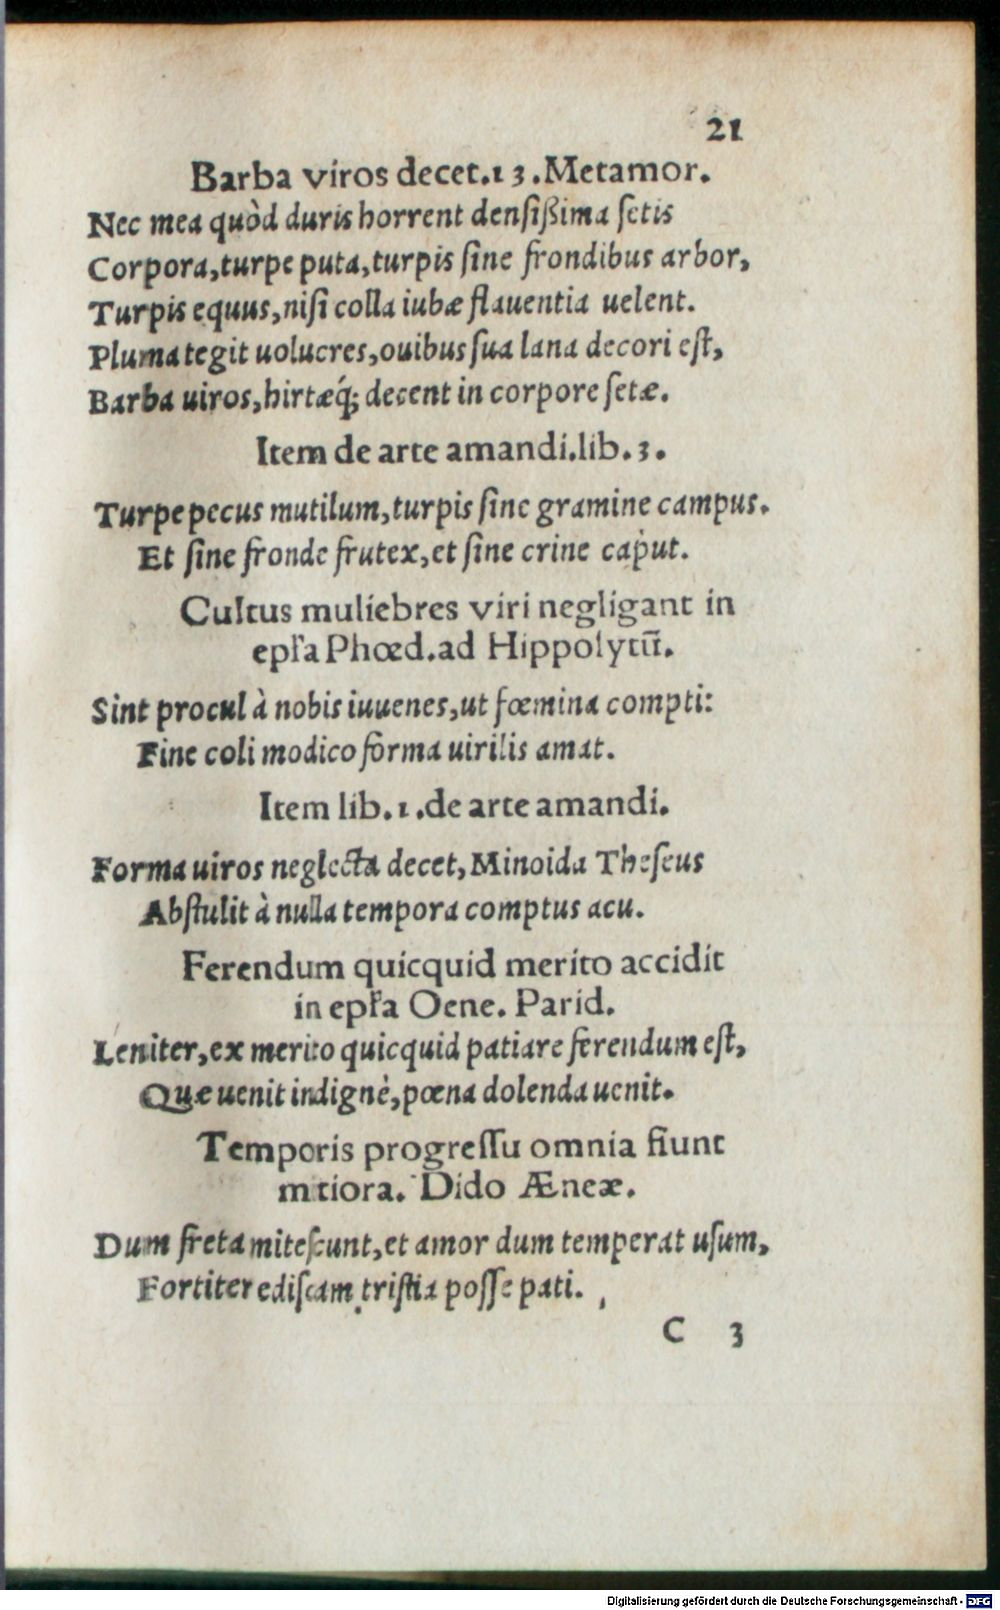 21
Barba viros decet.13.Metamor.
Nec mea quòd duris horrent densißima setis
Corpora,turpe puta,turpis sine frondibus arbor,
Turpis equus,nisi colla iubæ flauentia uelent.
Pluma tegit uolucres,ouibus sua lana decori est,
Barba uiros,hirtæq́; decent in corpore setæ.
Item de arte amandi.lib.3.
Turpe pecus mutilum,turpis sine gramine campus.
Et sine fronde frutex,et sine crine caput.
Cultus muliebres viri negligant in
epl̃a Phœd.ad Hippolytũ.
Sint procul à nobis iuuenes,ut fœmina compti:
Fine coli modico forma uirilis amat.
Item lib.1.de arte amandi.
Forma uiros neglecta decet, Minoida Theseus
Abstulit à nulla tempora comptus acu.
Ferendum quicquid merito accidit
in epl̃a Oene. Parid.
Leniter,ex merito quicquid patiare ferendum est,
Quæ uenit indignè,pœna dolenda uenit.
Temporis progressu omnia fiunt
mitiora. Dido Æneæ.
Dum freta mitescunt,et amor dum temperat usum,
Fortiter ediscam tristia posse pati.
C 3
Digitalisierung gefördert durch die Deutsche Forschungsgemeinschaft - DFG